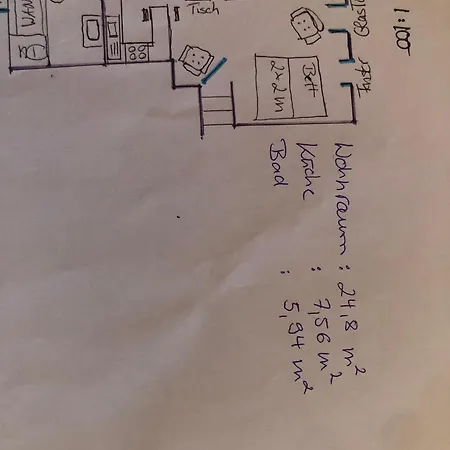 1:100
Tisch
Bett
2x2m
Wohnraum : 24,8 m²
Küche : 7,56 m²
Bad : 5,94 m²